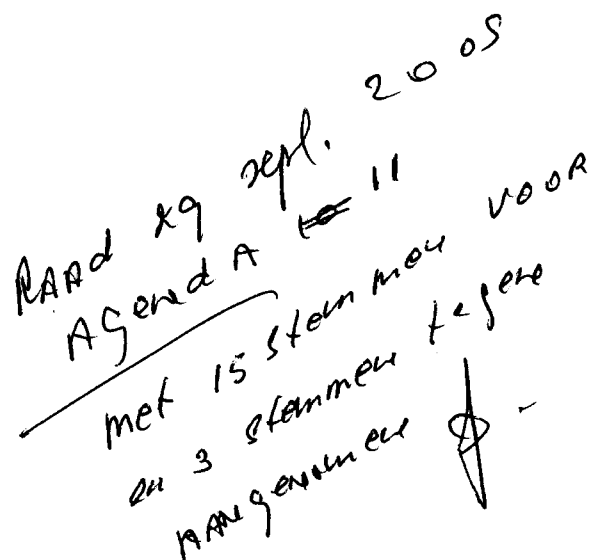 RAAd 29 sept. 2005
AgendA 11
met 15 stemmen VOOR
en 3 stemmen tegen
AANgenomen